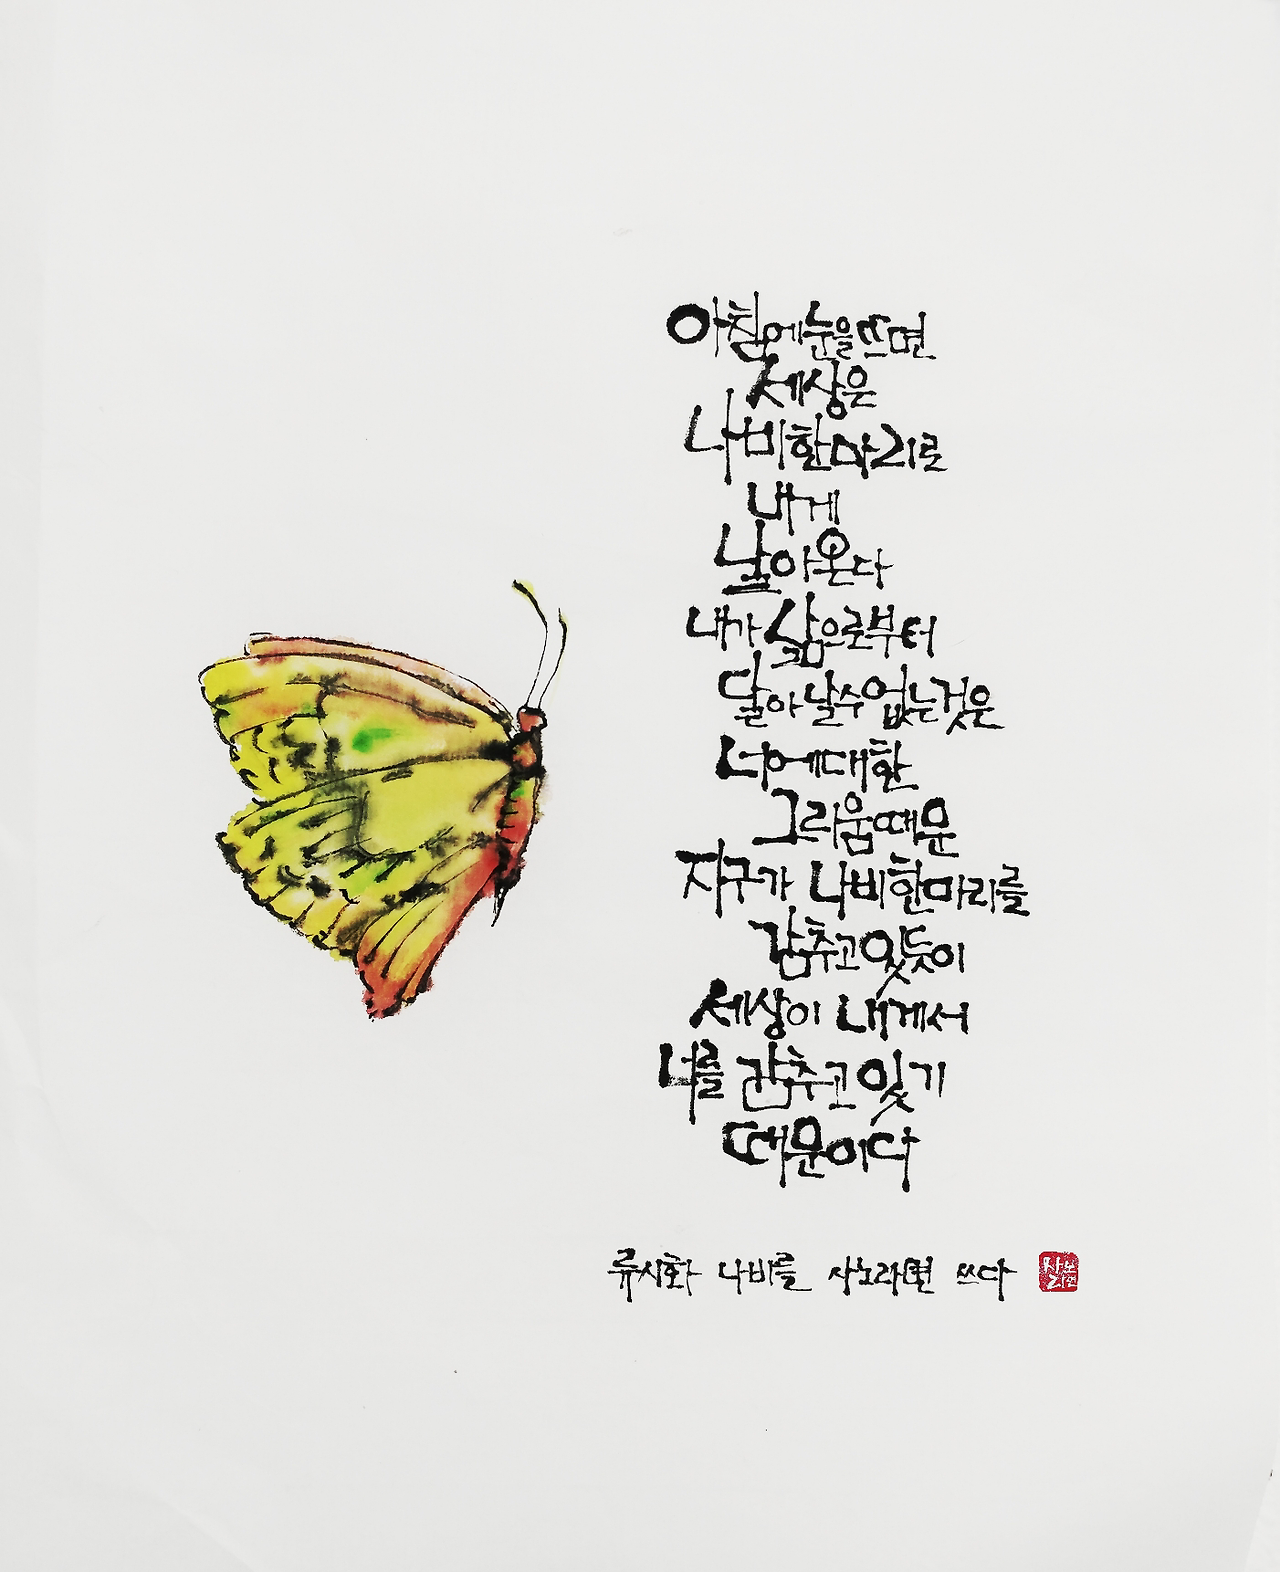 아침에눈을뜨면
세상은
나비한마리로
내게
날아온다
내가 삶으로부터
달아날수없는것은
너에대한
그리움때문
지구가 나비한마리를
감추고있듯이
세상이 내게서
너를 감추고있기
때문이다
류시화 나비를 사노라면 쓰다
사노라면